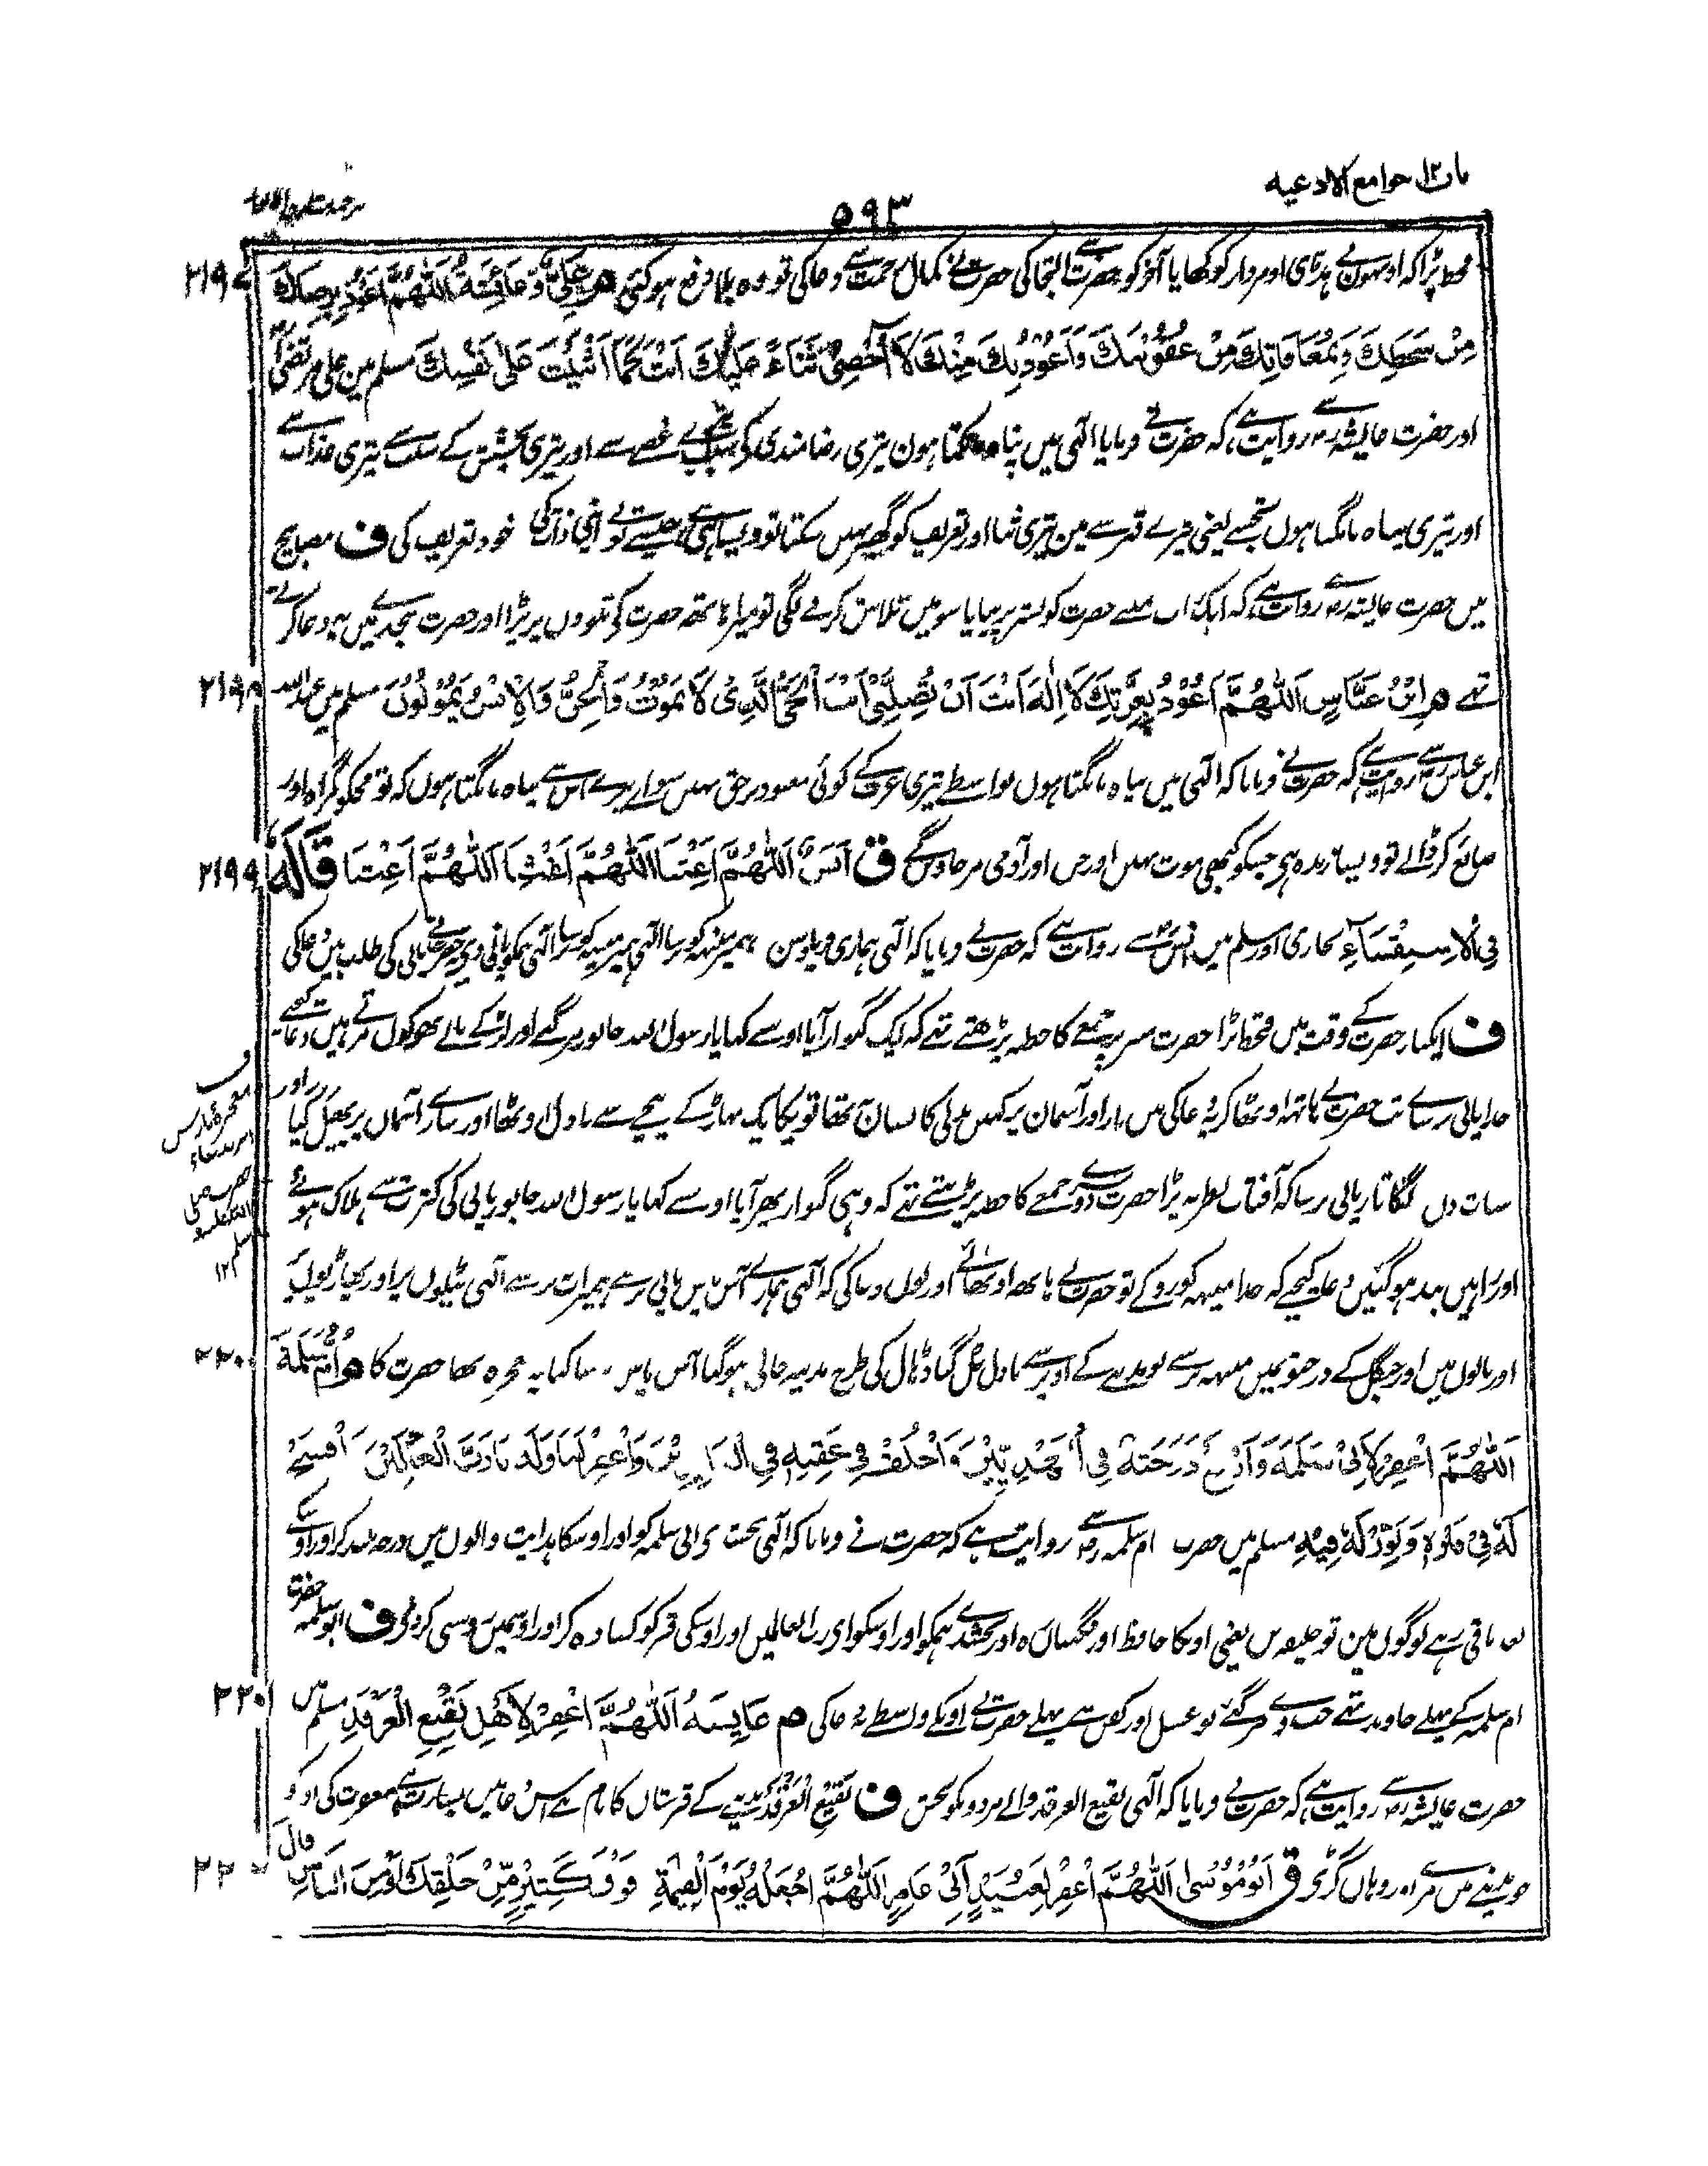 باب ۱۲ جوامع الادعیه
۵۹۳
قحط پڑا کہ اونہوں نے ہڈی اور مردار کو کھایا آخر کو حضرت سے التجا کی حضرت نے کمال رحمت سے دعا کی تو وہ بلا دفع ہو گئی م عَلِيٌّ وَّعَائِشَةُ اَللّٰهُمَّ اَعُوْذُ بِرِضَاكَ
۲۱۹۷
مِنْ سَخَطِكَ وَبِمُعَافَاتِكَ مِنْ عُقُوْبَتِكَ وَاَعُوْذُ بِكَ مِنْكَ لَا اُحْصِيْ ثَنَاءً عَلَيْكَ اَنْتَ كَمَا اَثْنَيْتَ عَلٰى نَفْسِكَ مسلم مین علی مرتضٰی
اور حضرت عایشہ رض سے روایت ہے کہ حضرت نے فرمایا الٰہی میں پناہ مانگتا ہون تیری رضامندی کی سبب تیرے غصے سے اور تیری بخشش کے سبب تیری عذاب سے
اور تیری پناہ مانگتا ہوں تجھسے یعنی تیرے قہر سے مین تیری ثنا اور تعریف کو گھیر نہیں سکتا تو ویسا ہی ہے جیسے تو نے اپنی ذات کی خود تعریف کی ف مصابیح
میں حضرت عایشہ رض سے روایت ہے کہ ایک رات مینے حضرت کو بستر پر نپایا سو میں تلاش کرنے لگی تو میرا ہاتھ حضرت کی تلووں پر پڑا اور حضرت سجدے میں یہ دعا کرتے
تہے م اِبْنُ عَبَّاسٍ اَللّٰهُمَّ اَعُوْذُ بِعِزَّتِكَ لَا اِلٰهَ اَنْتَ اَنْ تُضِلَّنِيْ اَنْتَ الْحَيُّ الَّذِيْ لَا يَمُوْتُ وَالْجِنُّ وَالْاِنْسُ يَمُوْتُوْنَ مسلم میں عبد اللہ
۲۱۹۸
ابن عباس رض سے روایت ہے کہ حضرت نے فرمایا کہ الٰہی میں پناہ مانگتا ہوں بواسطے تیری عزت کے کوئی معبود برحق نہیں سوائے تیرے اس سے پناہ مانگتا ہوں کہ تو مجکو گمراہ اور
ضائع کر ڈالے تو ویسا زندہ ہی جسکو کبھی موت نہیں اور جن اور آدمی مر جاوینگے ق اَنَسٌ اَللّٰهُمَّ اَغِثْنَا اَللّٰهُمَّ اَغِثْنَا اَللّٰهُمَّ اَغِثْنَا قَالَهٗ
۲۱۹۹
فِي الْاِسْتِسْقَاءِ بخاری اور مسلم میں انس سے روایت ہے کہ حضرت نے فرمایا کہ الٰہی ہمیر مینہ کو برسا الٰہی ہمیر مینہ کو برسا الٰہی ہمکو پانی دی حضرت نے پانی کی طلب میں دعا کی
ف ایکبار حضرت کے وقت میں قحط پڑا حضرت منبر پر جمعے کا خطبہ پڑھتے تھے کہ ایک گنوار آیا اوسے کہا یا رسول اللہ جانور مر گئے اور لڑکے بالے بھوکوں مرتے ہیں دعا کیجے
خدا پانی برساے تب حضرت نے ہاتہ اوٹھا کر یہ دعا کی تین بار اور آسمان پر کہیں بدلی کا نسان نتھا تو یکایک پہاڑ کے پیچھے سے بادل اوٹھا اور سارے آسمان پر پھیل گیا اور
سات دن لگاتار پانی برسا کہ آفتاب نظر نہ پڑا حضرت دوسرے جمعے کا خطبہ پڑہتے تہے کہ وہی گنوار پھر آیا اوسے کہا یا رسول اللہ جانور پانی کی کثرت سے ہلاک ہوئے
اور راہیں بند ہو گئیں دعا کیجے کہ خدا مینہہ کو روکے تو حضرت نے ہاتھ اوٹھائے اور یوں دعا کی کہ الٰہی ہمارے آس پاس پانی برسے ہمپر نہ برسے الٰہی ٹیلوں پر اور پہاڑیوں پر
اور نالوں میں اور جنگل کے درختوں میں مینہہ برسے تو مدینے کے اوپر سے بادل کھل گیا ڈھال کی طرح مدینہ خالی ہو گیا آس پاس برسا کیا یہ معجزہ تھا حضرت کا م اُمُّ سَلَمَةَ
۲۲۰۰
اَللّٰهُمَّ اغْفِرْ لِاَبِيْ سَلَمَةَ وَارْفَعْ دَرَجَتَهٗ فِي الْمَهْدِيِّيْنَ وَاخْلُفْهُ فِيْ عَقِبِهٖ فِي الْغَابِرِيْنَ وَاغْفِرْ لَنَا وَلَهٗ يَا رَبَّ الْعٰلَمِيْنَ اَفْسِحْ
لَهٗ فِيْ قَبْرِهٖ وَنَوِّرْ لَهٗ فِيْهِ مسلم میں حضرت ام سلمہ رض سے روایت ہے کہ حضرت نے فرمایا کہ الٰہی بخشدی ابی سلمہ کو اور اوسکا ہدایت والوں میں درجہ بلند کر اور اوسکے
باقی رہے لوگوں مین تو خلیفہ بن یعنی اونکا حافظ اور نگہبان رہ اور بخشدے ہمکو اور اوسکو ای رب العالمیں اور اوسکی قبر کو کشادہ کر اور اوسمیں روسنی کر دی ف ابو سلمہ حضرت
ام سلمہ کے پہلے خاوند تہے جب وے مر گئے تو غسل اور کفن سے پہلے حضرت نے اونکے واسطے یہ دعا کی م عَايِشَةُ اَللّٰهُمَّ اغْفِرْ لِاَهْلِ بَقِيْعِ الْغَرْقَدِ مسلم میں
۲۲۰۱
حضرت عایشہ رض سے روایت ہے کہ حضرت نے فرمایا کہ الٰہی بقیع الغرقد والے مردوں کو بخش ف بقیع الغرقد مدینے کے قبرستان کا نام ہے اس دعا میں بشارت ہے مغفرت کی اونکو
جو مدینے میں مرے اور وہاں گڑی ق اَبُوْ مُوْسٰى اَللّٰهُمَّ اغْفِرْ لِعُبَيْدٍ اَبِيْ عَامِرٍ اَللّٰهُمَّ اجْعَلْهُ يَوْمَ الْقِيٰمَةِ فَوْقَ كَثِيْرٍ مِّنْ خَلْقِكَ اَوْ مِنَ النَّاسِ قال